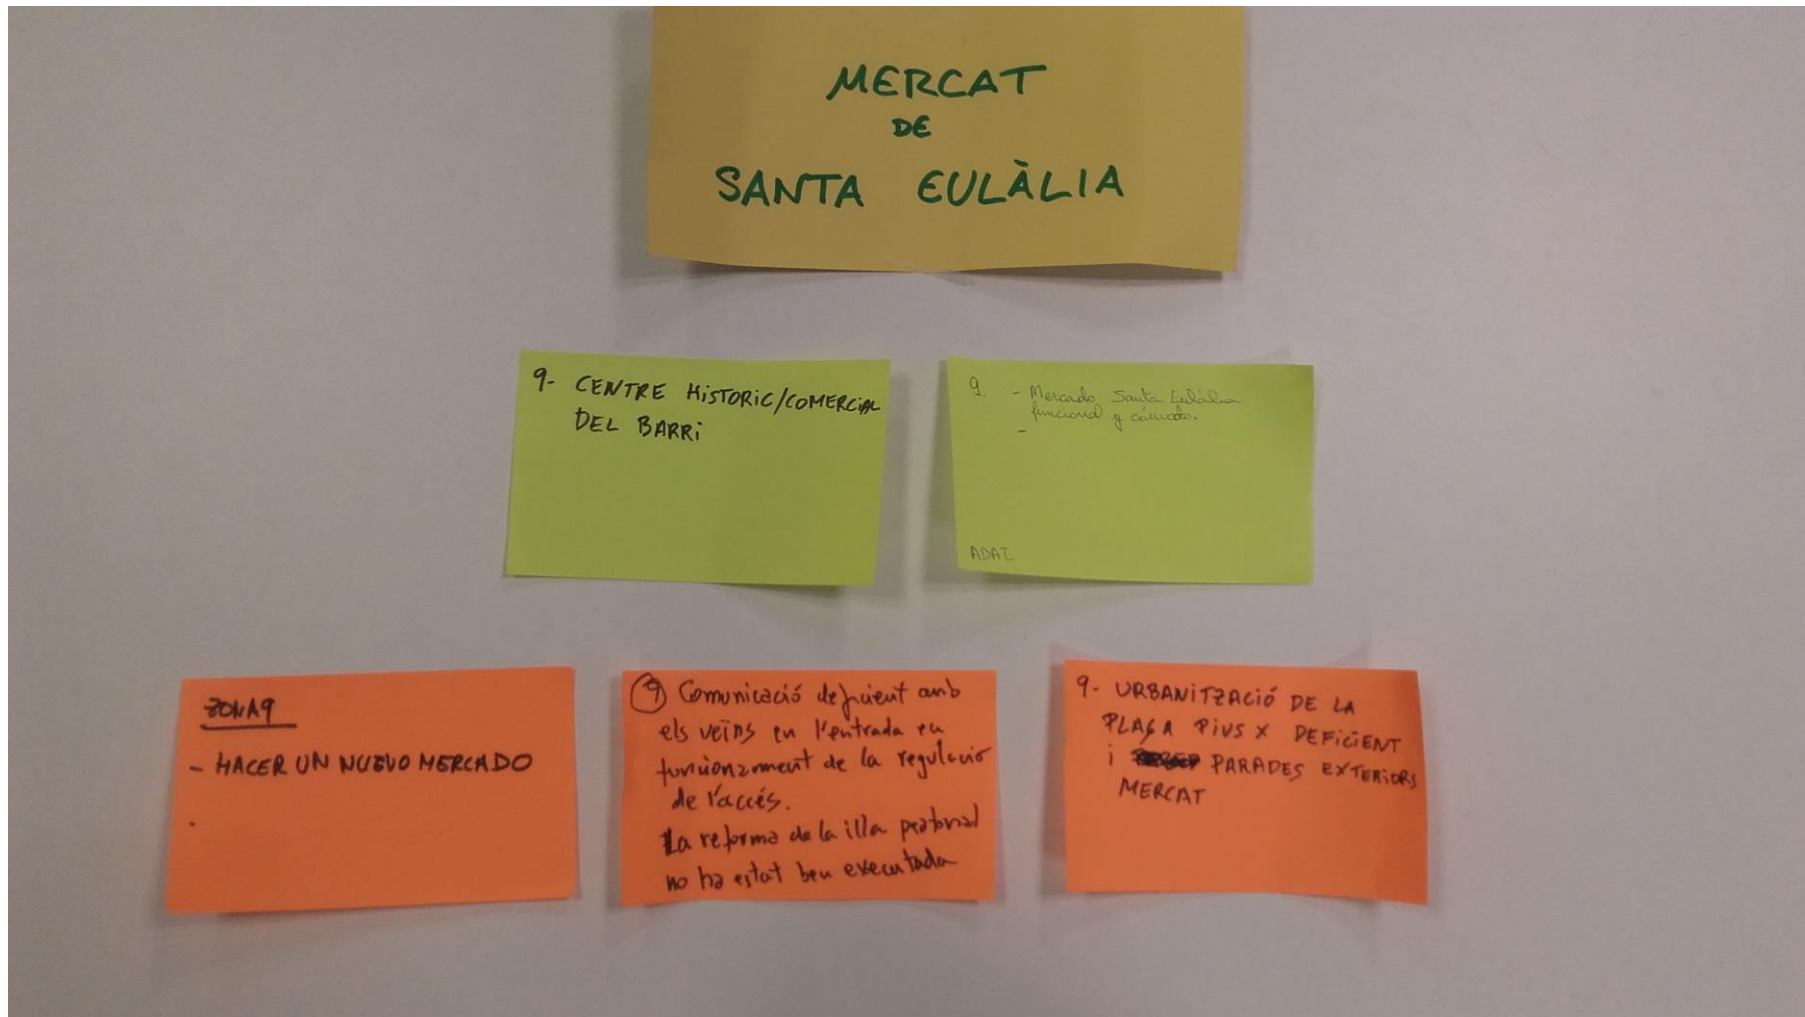 MERCAT
DE
SANTA EULÀLIA
9- CENTRE HiSTORIC/COMERCiAL
DEL BARRi
9. - Mercado Santa Eulàlia
funcional y cómodo.
-
ADAI
ZONA9
- HACER UN NUEVO MERCADO
.
9 Comunicació deficient amb
els veïns en l'entrada en
funcionament de la regulació
de l'accés.
La reforma de la illa peatonal
no ha estat ben executada
9- URBANITZACIÓ DE LA
PLAÇA PiUS X DEFiCiENT
i PARADES EXTERiORS
MERCAT